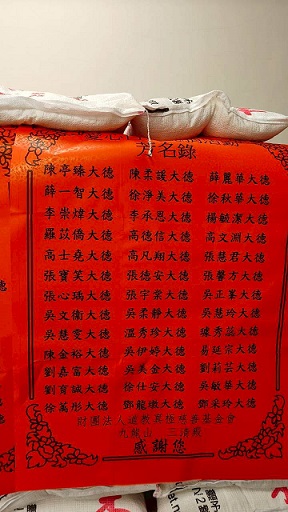 芳名錄
陳亭臻大德 陳柔諼大德 薛麗華大德
薛一智大德 徐淨美大德 徐秋華大德
李崇煒大德 李承恩大德 楊毓潔大德
羅苡僑大德 高德信大德 高文淵大德
高士堯大德 高凡翔大德 張慧君大德
張寶笑大德 張德安大德 張馨方大德
張心瑀大德 張宇棠大德 吳正峯大德
吳文衛大德 吳柔靜大德 吳慧玲大德
吳慧雯大德 溫秀珍大德 秀蕊大德
陳金裕大德 吳伊婷大德 易延宗大德
劉嘉富大德 吳美金大德 劉莉芸大德
劉宥誠大德 徐仕安大德 吳敏華大德
徐彤大德 鄧龍墩大德 鄧采玲大德
財團法人道教昇極慈善基金會
九龍山 三清殿
感謝您